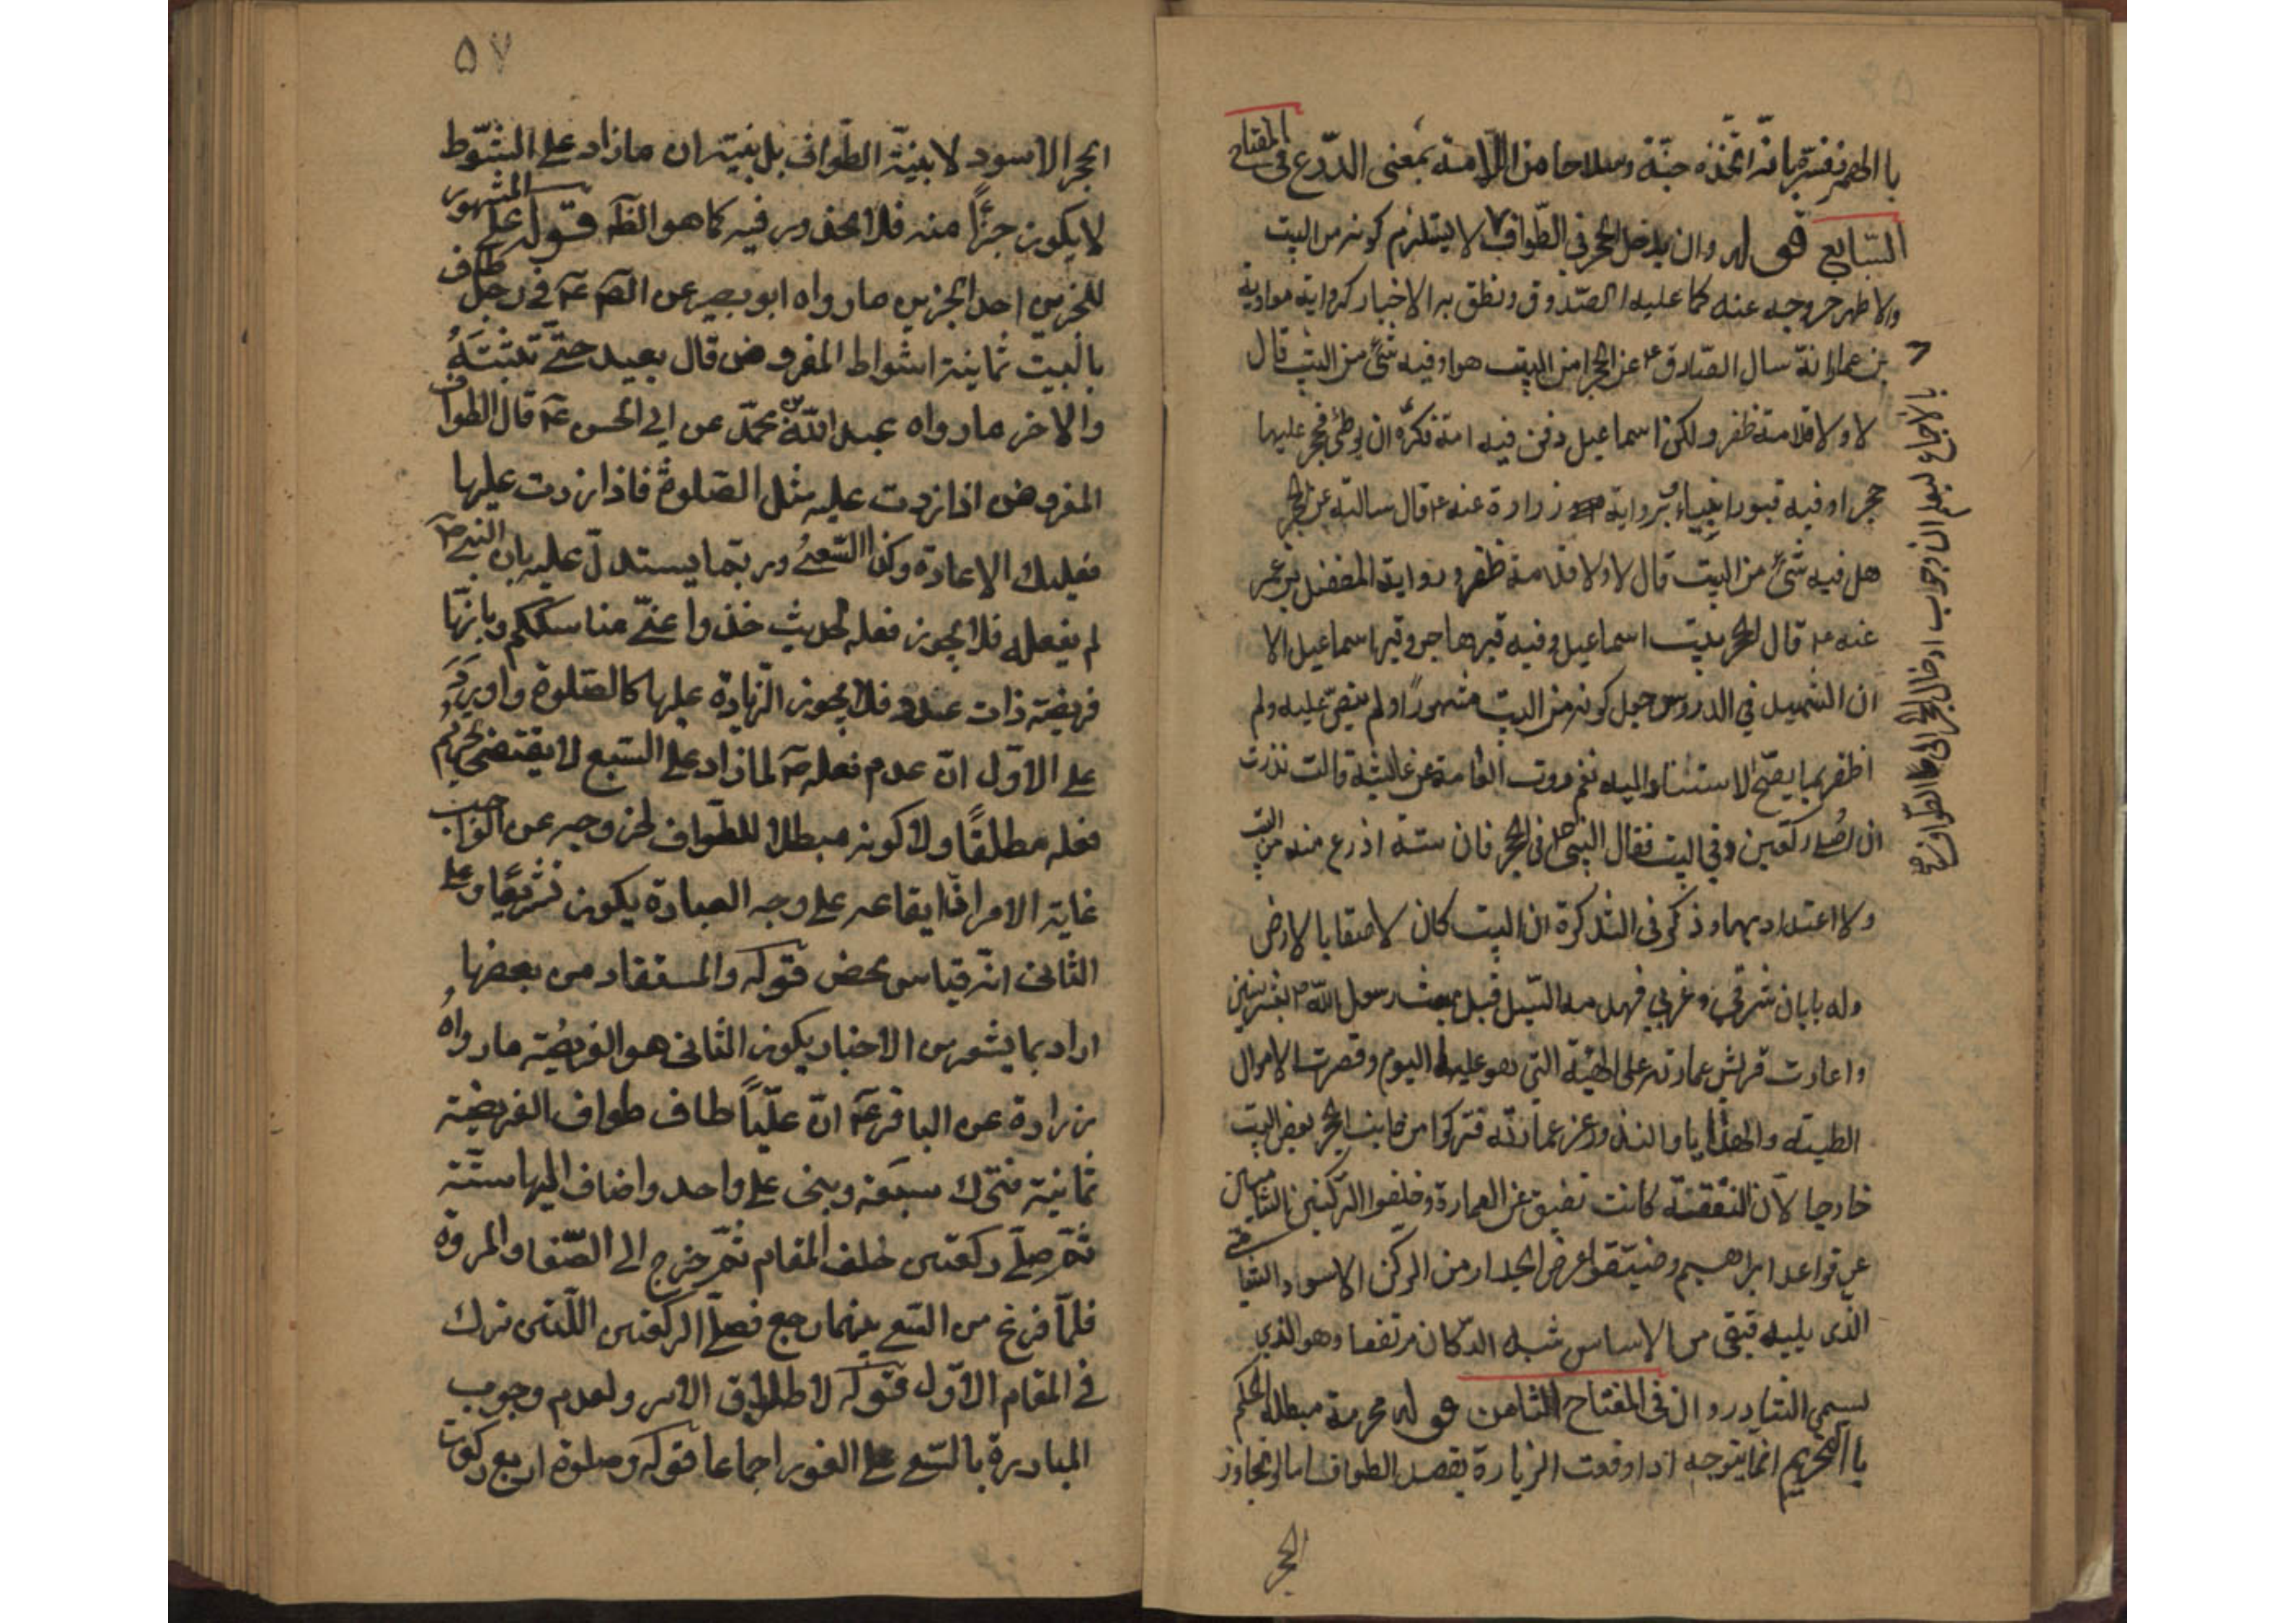 با الهمز نفسه بانه اتخذه جنة وسلاحا من اللامة بمعنى الدرع فى المفتاح
السابع قوله وان يدخل الحجر فى الطواف ٧ لا يستلزم كونه من البيت
والاظهر خروجه عنه كما عليه الصدوق ونطق به الاخبار كرواية معاوية
بن عمار انه سال الصادق ع عن الحجر امن البيت هو او فيه شئ من البيت قال
لا ولا قلامة ظفر ولكن اسماعيل دفن فيه امه فكره ان يوطئ فحجر عليها
حجرا وفيه قبور انبياء ورواية زرارة عنه ع قال سالته عن الحجر
هل فيه شئ من البيت قال لا ولا قلامة ظفر ورواية المفضل بن عمر
عنه ع قال الحجر بيت اسماعيل وفيه قبر هاجر وقبر اسماعيل الا
ان الشهيد في الدروس جعل كونه من البيت مشهورًا ولم ينص عليه ولم
اظفر بما يصح الاستناد اليه نعم روت العامة عن عائشة قالت نذرت
ان اصلى ركعتين في البيت فقال النبى ص صل فى الحجر فان ستة اذرع منه من البيت
ولا اعتداد بهما وذكر فى التذكرة ان البيت كان لاصقا بالارض
وله بابان شرقي وغربي فهدمه السيل قبل مبعث رسول الله ص بعشر سنين
واعادت قريش عمارته على الهيئة التي هو عليها اليوم وقصرت الاموال
الطيبة والهدايا والنذور عن عمارته فتركوا من جانب الحجر بعض البيت
خارجا لان النفقة كانت تضيق عن العمارة وخلفوا الركنين الشاميين
عن قواعد ابراهيم وضيقوا عرض الجدار من الركن الاسود الى الشامى
الذى يليه فبقى من الاساس شبه الدكان مرتفعا وهو الذي
يسمى الشادروان فى المفتاح الثامن قوله محرمة مبطلة الحكم
با التحريم انما يتوجه اذا وقعت الزيارة بقصد الطواف اما لو تجاوز
الحجر
٧ للاجماع لبعد ان وجوب ادخال الحجر في الطواف
٥٧
الحجر الاسود لا بنية الطواف بل بنية ان ما زاد على الشوط
لا يكون جزًا منه فلا محذور فيه كما هو الظ قوله على المشهور
للخبرين احد الخبرين ما رواه ابو بصير عن الص ع في رجل طاف
بالبيت ثمانية اشواط المفروض قال يعيد حتى تثبته
والاخر ما رواه عبد الله بن محمد عن ابي الحسن ع قال الطواف
المفروض اذا زدت عليه مثل الصلوة فاذا زدت عليها
فعليك الاعادة وكذا السعى وربما يستدل عليه بان النبى ص
لم يفعله فلا يجوز فعله لحديث خذوا عنى مناسككم وبانها
فريضة ذات عدد فلا يجوز الزيادة عليها كالصلوة واورد
على الاول ان عدم فعله ص لما زاد على السبع لا يقتضى تحريم
فعله مطلقًا ولا كونه مبطلا للطواف لخروجه عن الواجب
غاية الامر ان ايقاعه على وجه العبادة يكون تشريعًا وعلى
الثانى انه قياس محض قوله والمستفاد من بعضها
اراد بما يشعر من الاخبار بكون الثانى هو الفريضة ما رواه
زرارة عن الباقر ع ان عليًا طاف طواف الفريضة
ثمانية فترك سبعة وبنى على واحد واضاف اليها ستة
ثم صلى ركعتين خلف المقام ثم خرج الى الصفا والمروة
فلما فرغ من السعى بينهما رجع فصلى الركعتين اللتين ترك
فى المقام الاول قوله لاطلاق الامر ولعدم وجوب
المبادرة بالسعى على الفور اجماعا قوله وصلوة اربع ركعات